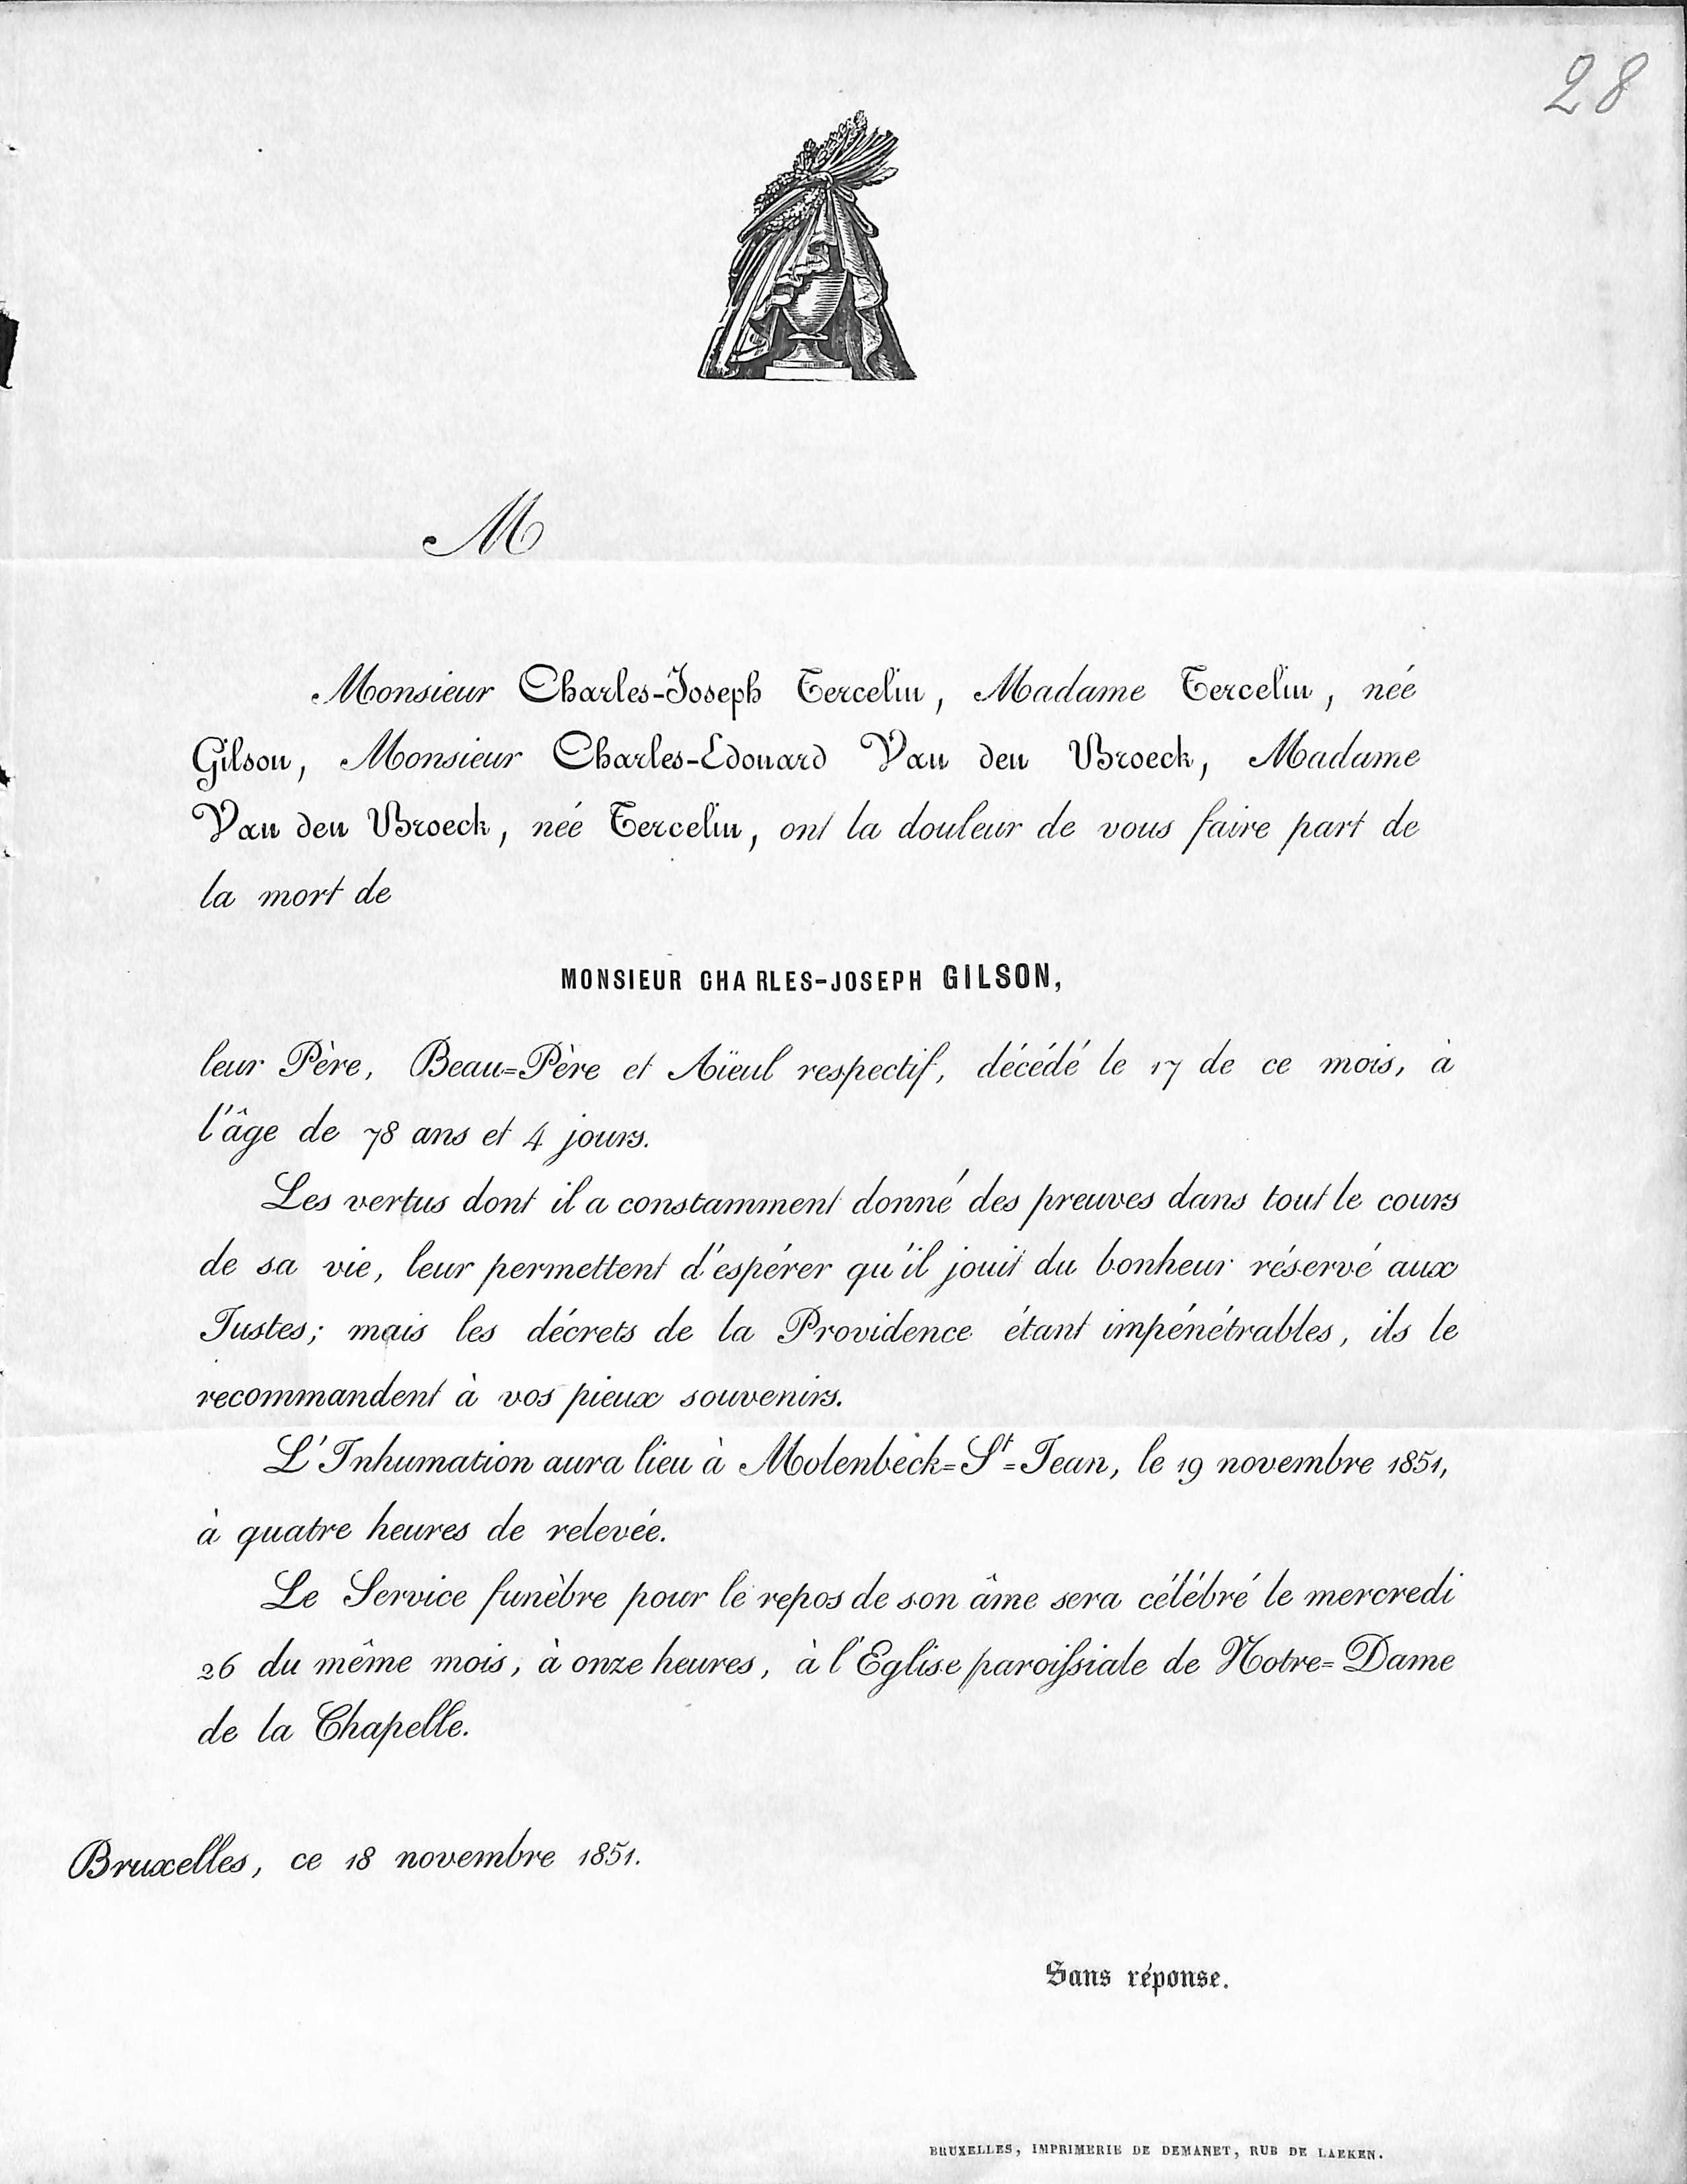 28
M
Monsieur Charles-Joseph Tercelin, Madame Tercelin, née
Gilson, Monsieur Charles-Edouard Van den Broeck, Madame
Van den Broeck, née Tercelin, ont la douleur de vous faire part de
la mort de
MONSIEUR CHARLES-JOSEPH GILSON,
leur Père, Beau=Père et Aïeul respectif, décédé le 17 de ce mois, à
l'âge de 78 ans et 4 jours.
Les vertus dont il a constamment donné des preuves dans tout le cours
de sa vie, leur permettent d'espérer qu'il jouit du bonheur réservé aux
Justes; mais les décrets de la Providence étant impénétrables, ils le
recommandent à vos pieux souvenirs.
L'Inhumation aura lieu à Molenbéck=St=Jean, le 19 novembre 1851,
à quatre heures de relevée.
Le Service funèbre pour le repos de son âme sera célébré le mercredi
26 du même mois, à onze heures, à l'Eglise paroiſsiale de Notre=Dame
de la Chapelle.
Bruxelles, ce 18 novembre 1851.
Sans réponse.
BRUXELLES, IMPRIMERIE DE DEMANET, RUE DE LAEKEN.